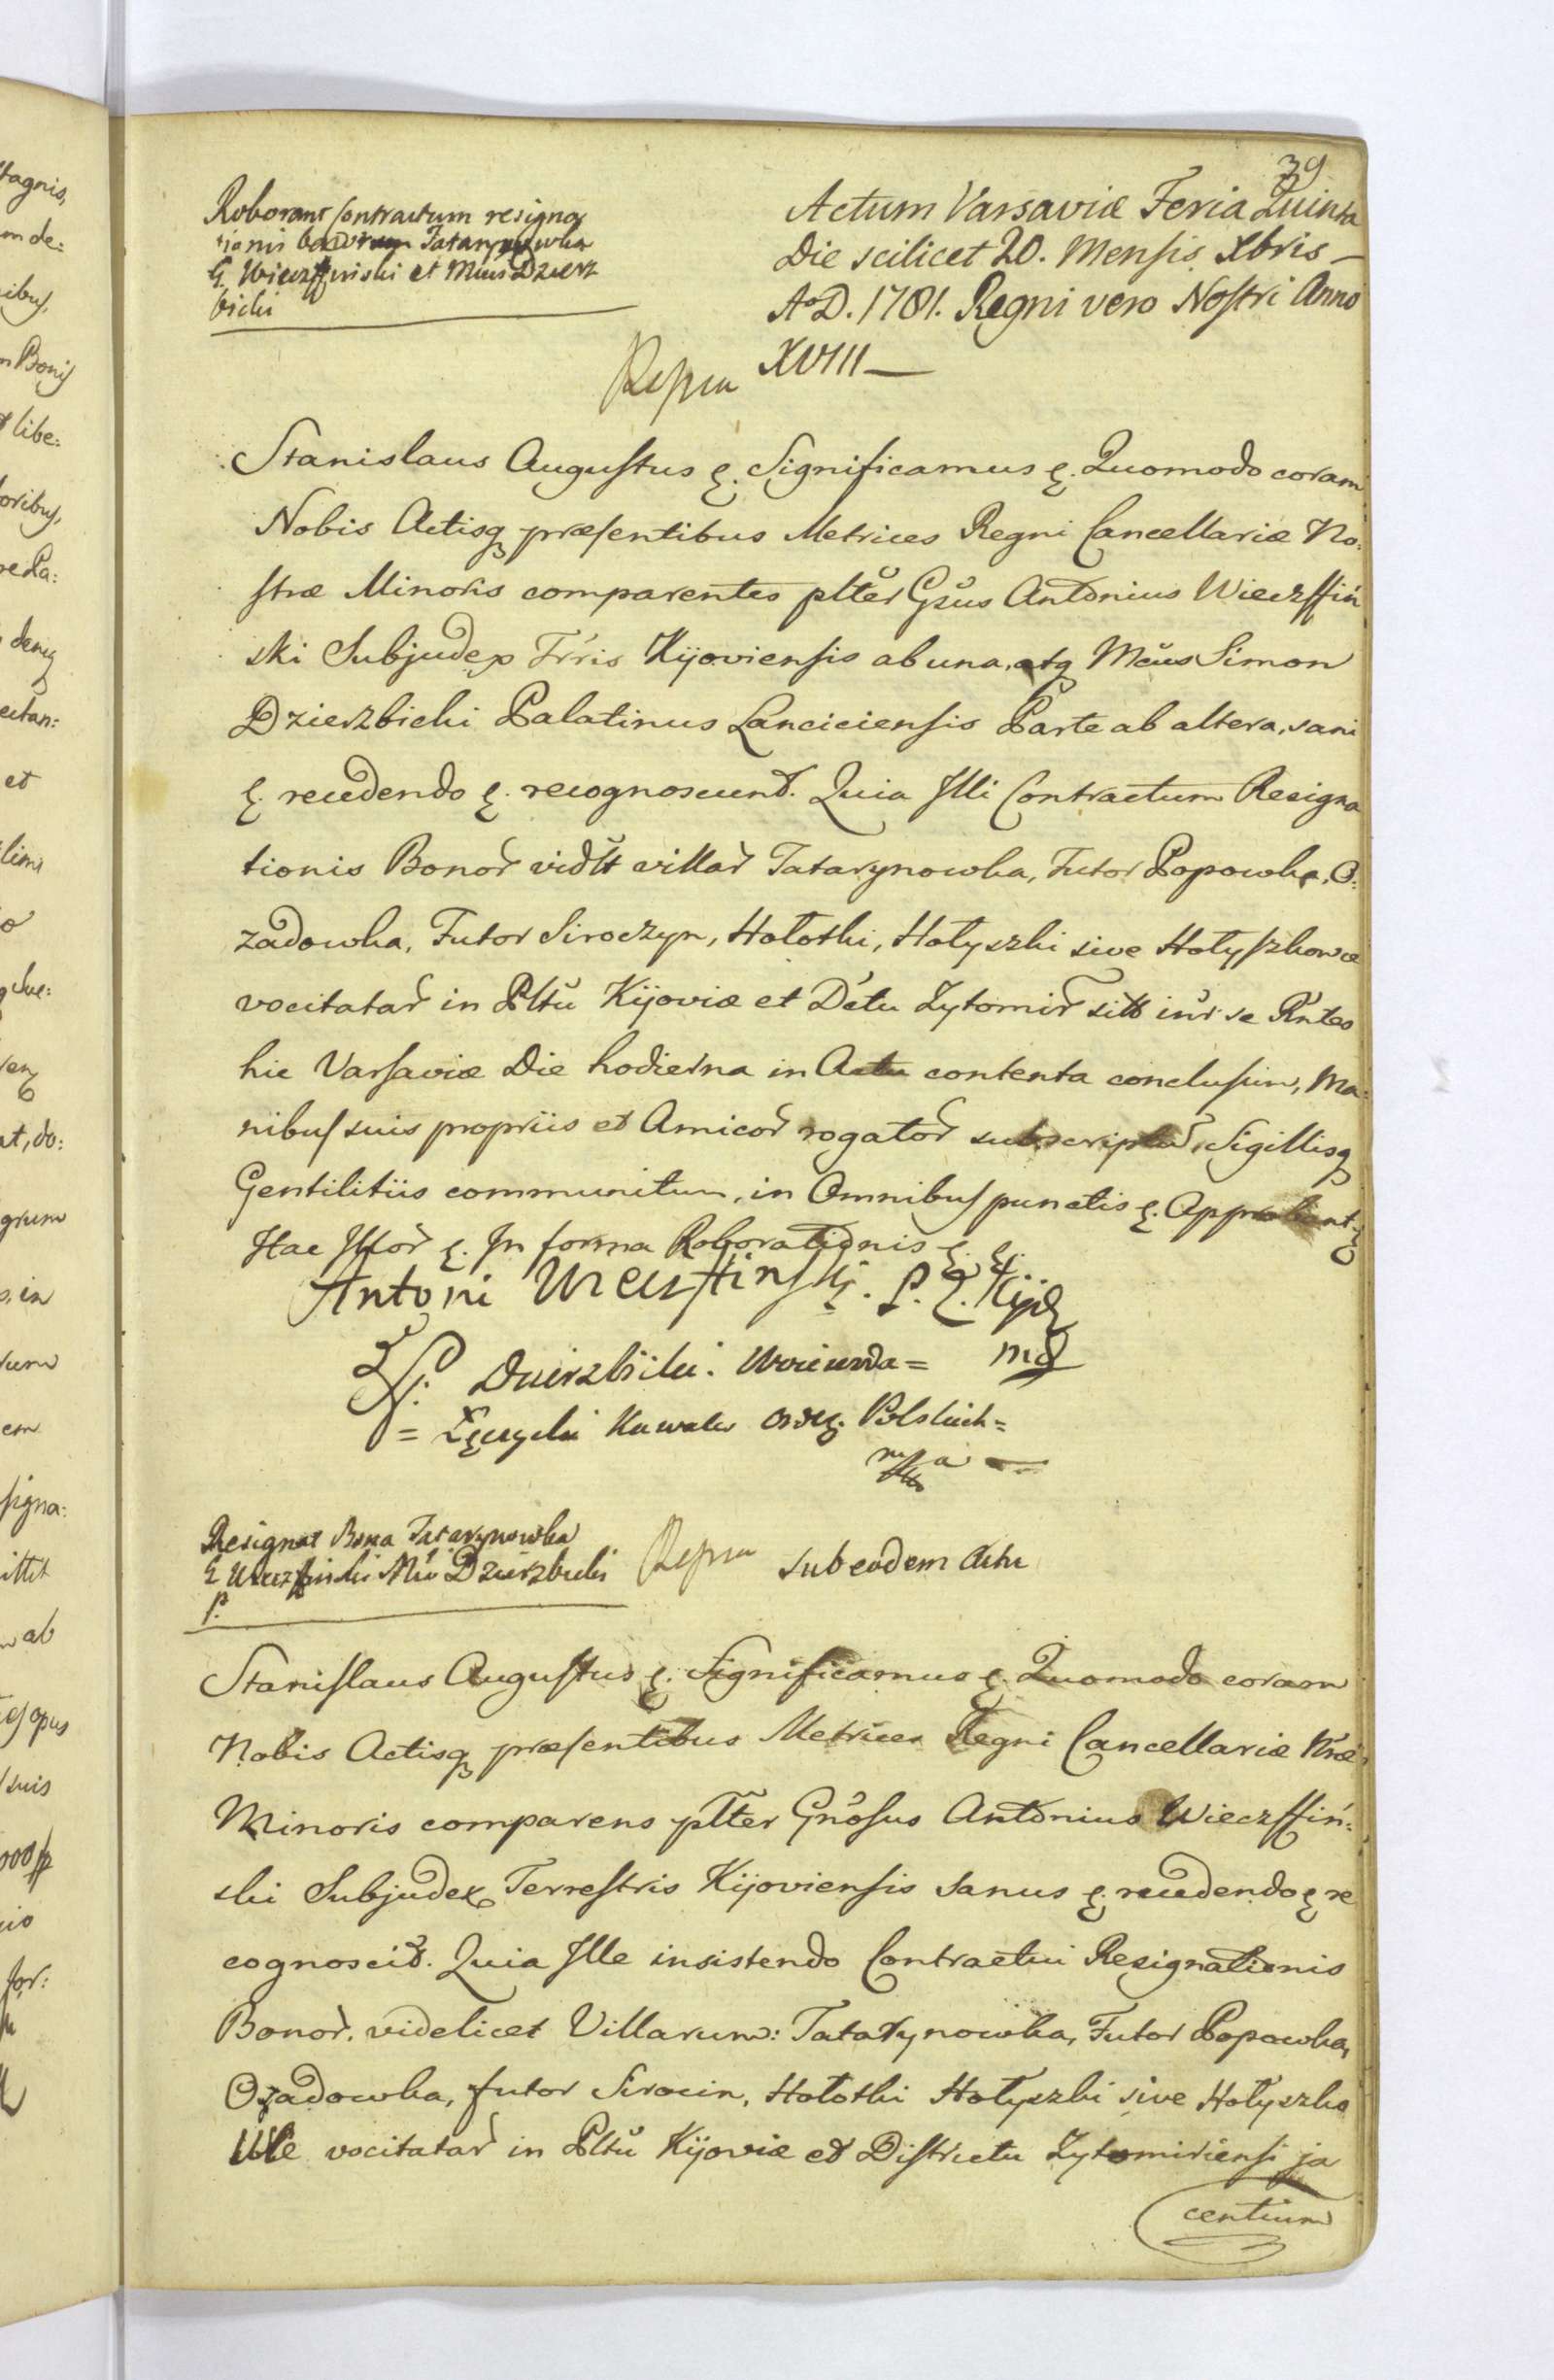 39
Roborant Contractum resigna
tionis bonorum Tatarynowka
G. Wieczffinski et Mcus Dzierz
bicki
Actum Varsaviæ Feria Quinta
Die scilicet 20. Mensis Xbris —
A°D. 1781. Regni vero Nostri Anno
XVIII —
Stanislaus Augustus &. Significamus &. Quomodo coram
Nobis Actisq præsentibus Metrices Regni Cancellariæ No:
stræ Minoris comparentes plter Gsus Antonius Wieczffiń
ski Subjudex Trris Kijoviensis ab una, atq Mcus Simon
Dzierzbicki Palatinus Lanciciensis Parte ab altera, sani
&. recedendo &. recognoscunt. Quia Illi Contractum Resigna
tionis Bonor vidlt villar Tatarynowka, Futor Popowka, O:
zadowka, Futor Siroczyn, Hołotki, Hołyszki sive Hołyszkowce
vocitatar in Pltu Kijoviæ et Dctu Zytomir sitt intr se Rntes
hic Varsaviæ Die hodierna in Actu contenta conclusum, Ma:
nibus suis propriis et Amicor rogator subscriptum, Sigillisq
Gentilitiis communitum, in Omnibus punctis &. Approbant &
Hac Illor &. In forma Roborationis &. &.
Antoni Wieczffinski. P. Z. Kijo
Dzierzbicki. Woiewoda = mp
= Łęczycki Kawaler order. Polskich =
Resignat Bona Tatarynowka
G Wieczffinski Mco Dzierzbicki
P.
sub eodem Actu
Stanislaus Augustus &. Significamus &. Quomodo coram
Nobis Actisq præsentibus Metrices Regni Cancellariæ Nræ
Minoris comparens plter Gnosus Antonius Wieczffiń:
ski Subjudex Terrestris Kijoviensis sanus &. recedendo & re
cognoscit. Quia Ille insistendo Contractui Resignationis
Bonor. videlicet Villarum: Tatarynowka, Futor Popowka,
Ozadowka, futor Sirocin, Hołotki Hołyszki sive Hołyszko
wce vocitatar in Pltu Kijoviæ et Districtu Zytomiriensi ja
centium